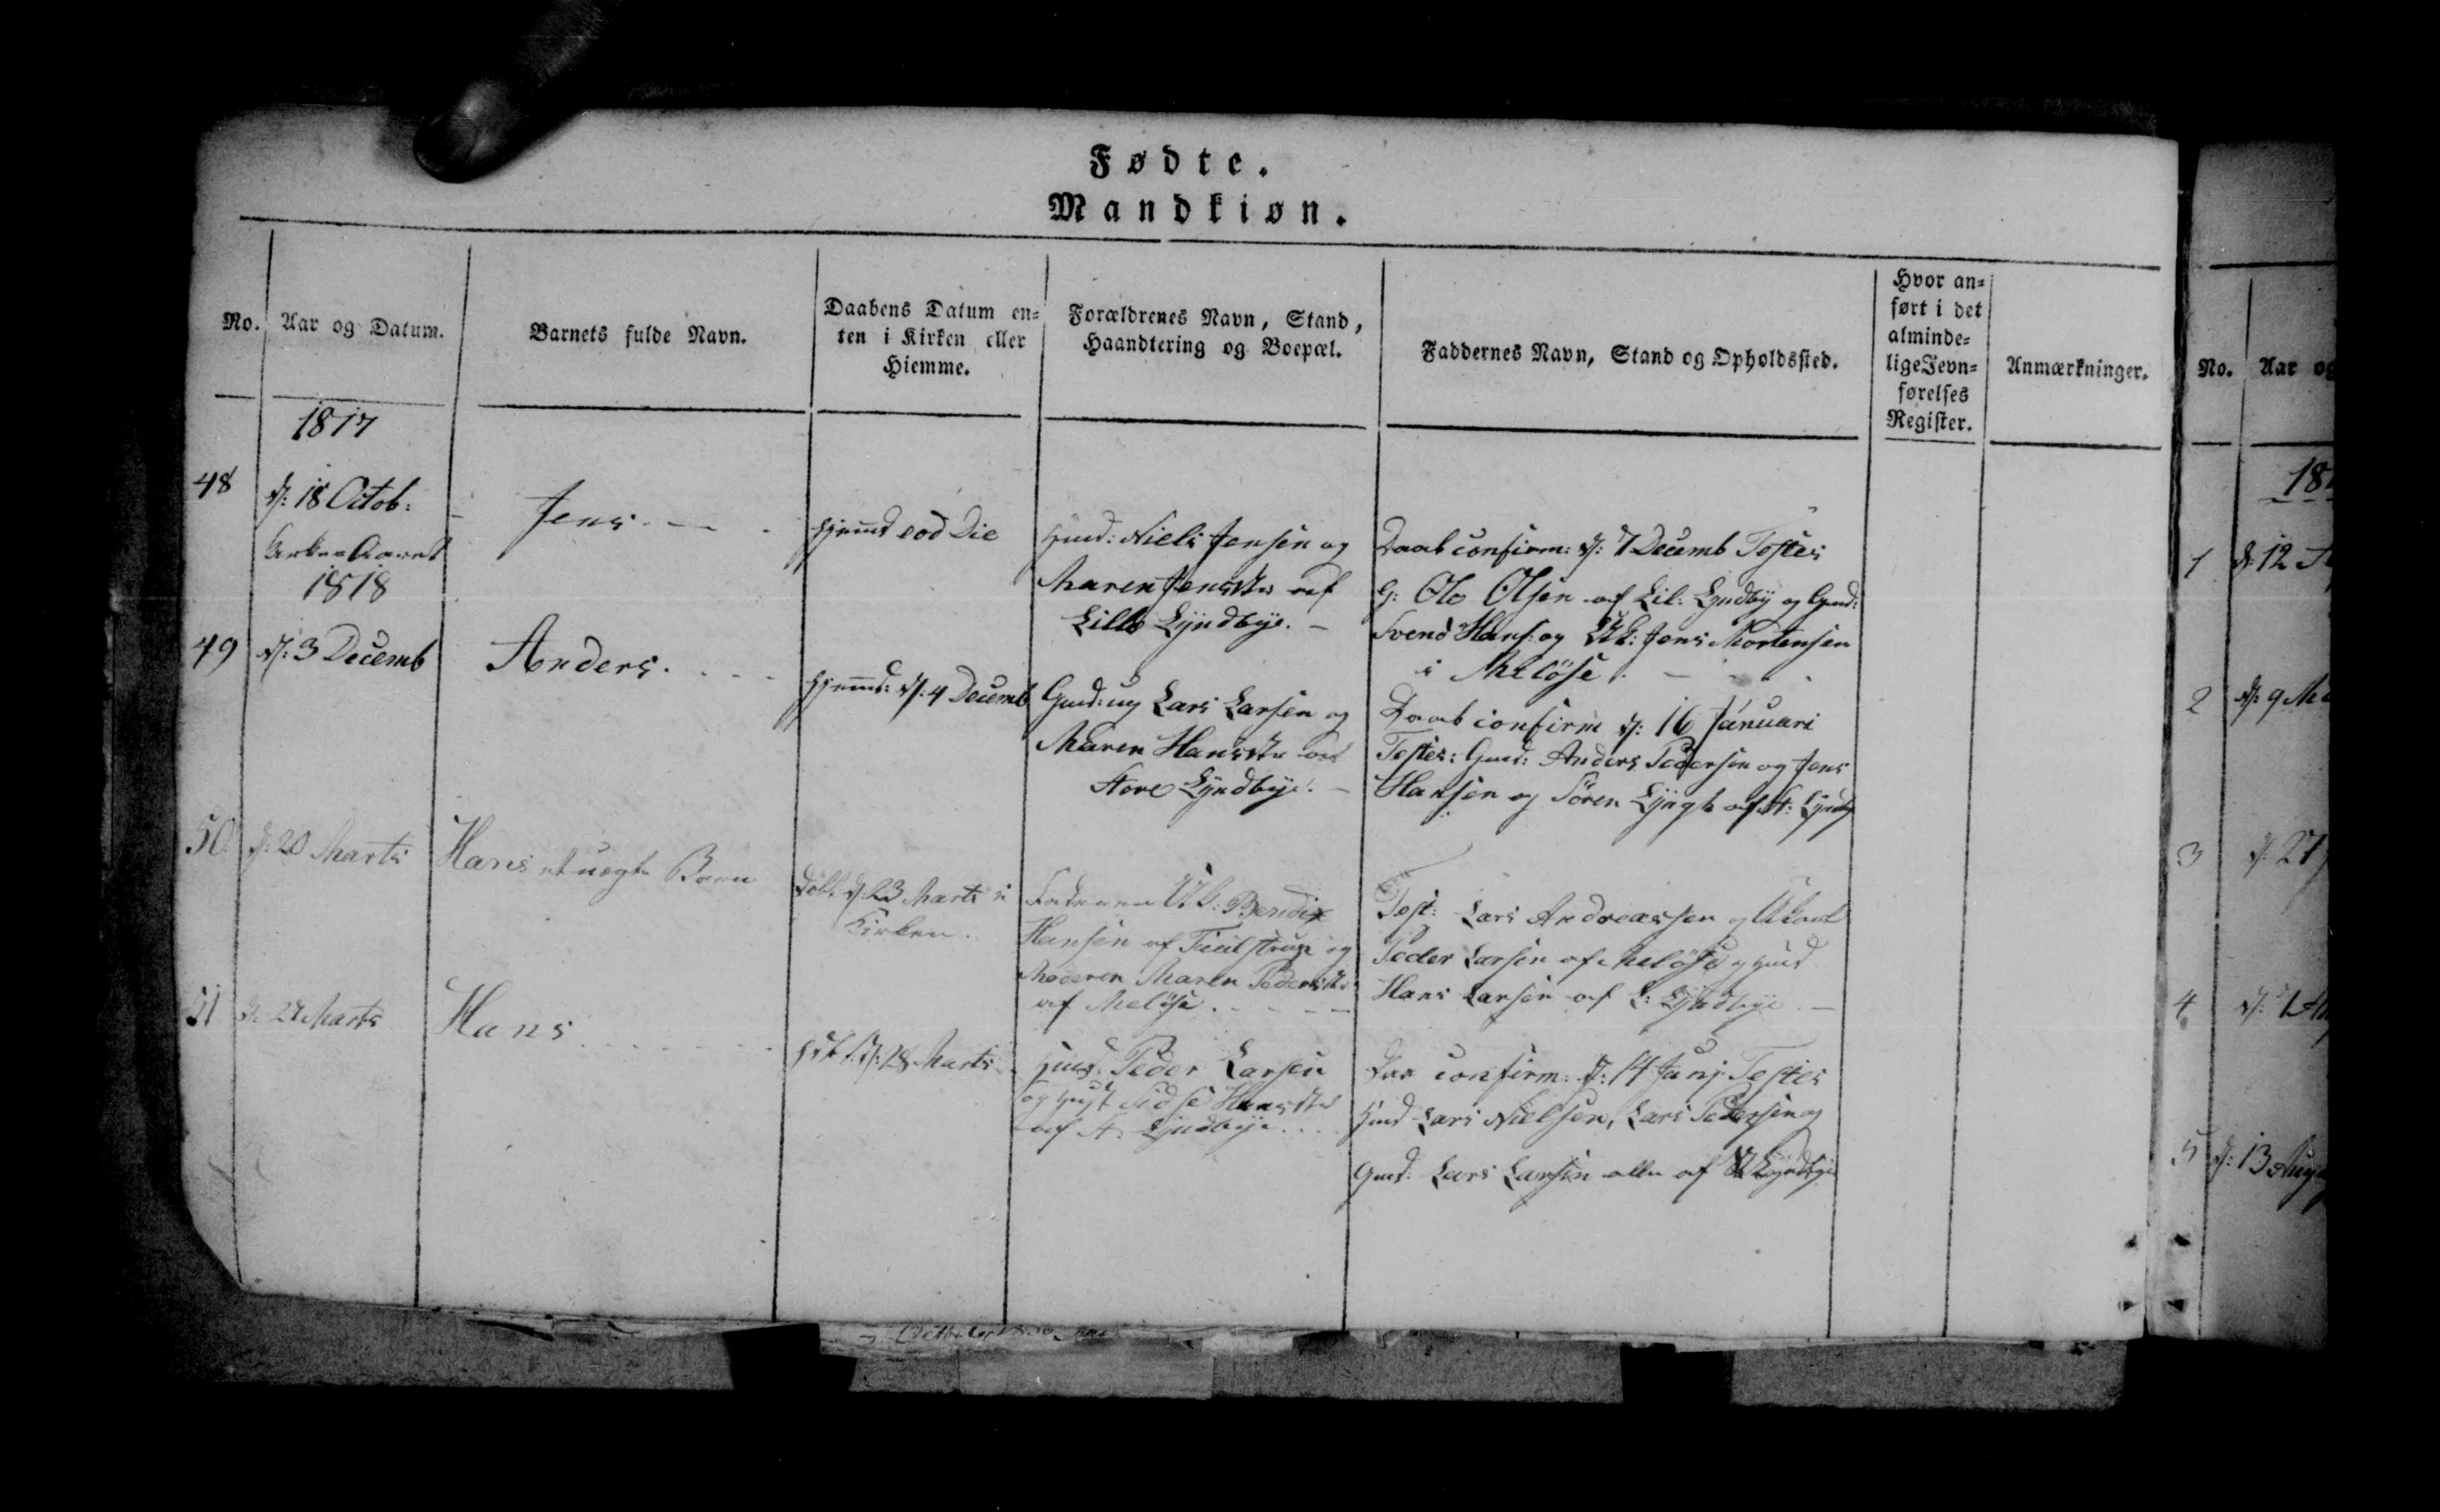 Fødte.
Mandkiøn.
No.
Aar og Datum.
Barnets fulde Navn.
Daabens Datum en=
ten i Kirken eller
Hiemme.
Forældrenes Navn, Stand,
Haandtering og Boepæl.
Faddernes Navn, Stand og Opholdssted.
Hvor an=
ført i det
alminde=
lige Jevn=
førelses
Register.
Anmærkninger.
1817
48
d: 18 Octob:
Jens
Hjemd eod Die
Huusd: Niels Jensen og
Maren Jensdtr af
Lille Lyndbye.
Daab confirm: d: 7 Decemb Testes
G: Ole Olsen af Lil: Lyndby og Gmd:
Svend Hans: og Uk: Jens Mortensen
i Meløse.
Kirke Aaret
1818
49
d: 3 Decemb
Anders.
Hjemd: d: 4 Decemb
Gmd: ug Lars Larsen og
Maren Hansdtr af
Store Lyndbye.
Daab confirm d: 16 Januari
Testes: Gmd: Anders Pedersen og Jens
Hansen og Søren Lyngh af St: Lyndby
50
d: 20 Marts
Hans et uægte Barn
Døbt d 23 Marts i
Kirken.
Faderen Uk: Bendix
Hansen af Freilstrup og
Moderen Maren Pedersdtr
af Meløse.
Test: Lars Andreassen og Ukarl
Peder Larsen af Meløse og Hmd
Hans Larsen af L: Lyndbye.
51
d: 27 Marts
Hans
d: 28 Marts
Huusd: Peder Larsen
og Sidse Hansdtr
af St: Lyndbye.
Daa confirm: d: 14 Junj Testes
Hmd Lars Nielsen, Lars Pedersen og
Gmd: Lars Larsen alle af St Lyndbye
No.
Aar og
18
1
d: 12
2
d: 9
3
d: 27
4
d: 1
5
d: 13 Aug